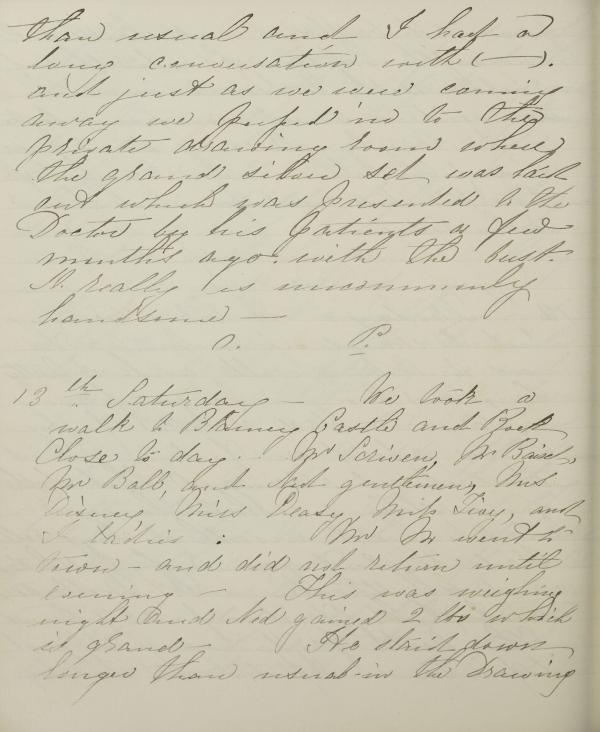 than usual and I had a
long conversation with (—).
and just as we were coming
away we peeped in to the
private drawing room where
the grand silver set was laid
out which was presented to the
Doctor by his patients a few
months ago. with the bust.
It really is uncommonly
handsome —
P.
13th Saturday — We took a
walk to Blarney Castle and Rock
Close to day. Mr Scriven, Mr
Mr Ball, and gentlemen, Mrs
Disney, Miss Deasy, Miss and
I ladies : Mr M went to
town — and did not return until
evening — This was weighing
night and Ned gained 2 lbs which
is grand He staid down
longer than usual in the Drawing